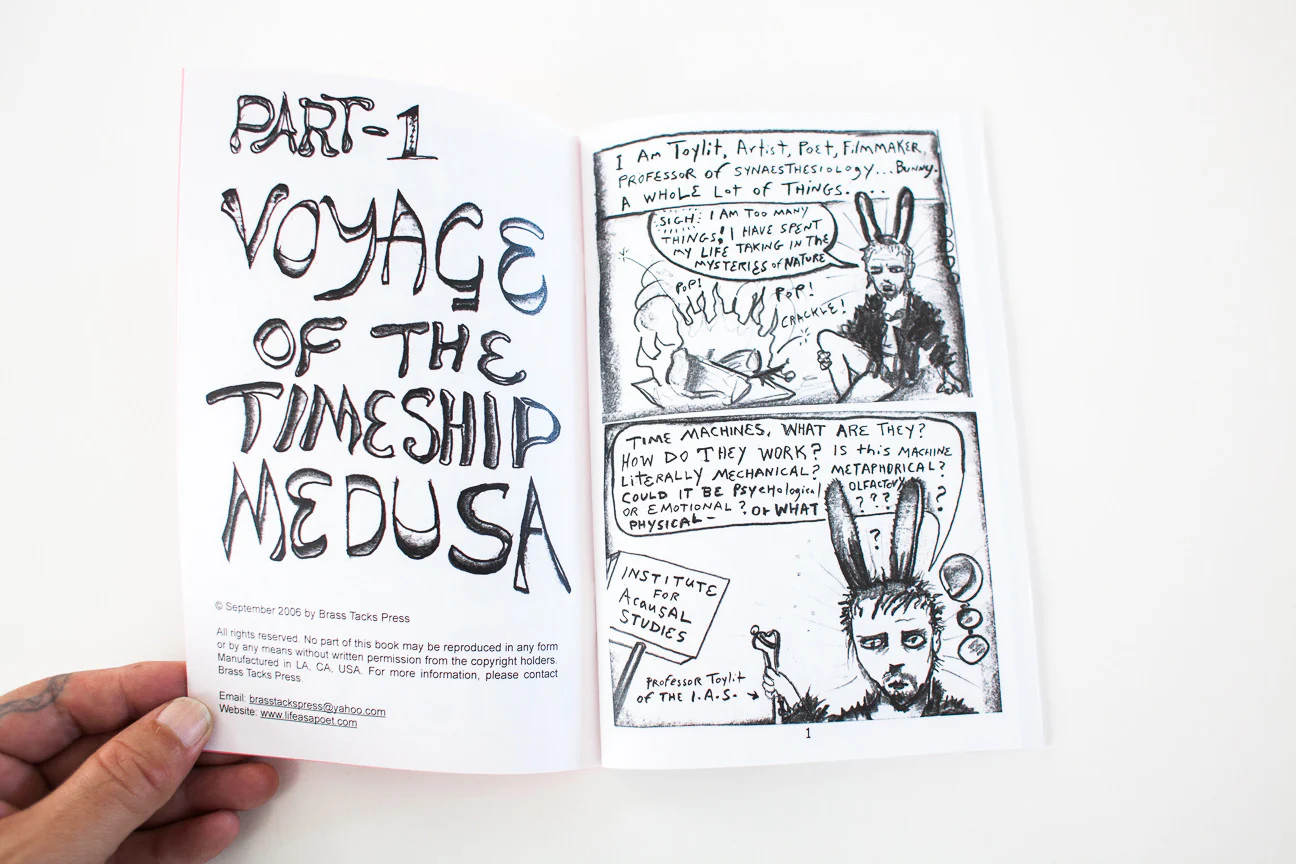 PART-1
VOYAGE
OF THE
TIMESHIP
MEDUSA
© September 2006 by Brass Tacks Press
All rights reserved. No part of this book may be reproduced in any form
or by any means without written permission from the copyright holders.
Manufactured in LA, CA, USA. For more information, please contact
Brass Tacks Press.
Email: brasstackspress@yahoo.com
Website: www.lifeasapoet.com
I Am Toylit, Artist, Poet, Filmmaker,
PROFESSOR of SYNAESTHESIOLOGY... Bunny.
A WHOLE Lot of THINGS. . . .
SIGH: I AM TOO MANY
THINGS! I HAVE SPENT
MY LIFE TAKING IN THE
MYSTERIES of NATURE
POP!
POP!
CRACKLE!
TIME MACHINES, WHAT ARE THEY?
HOW DO THEY WORK? IS this MACHINE
LITERALLY MECHANICAL? METAPHORICAL?
COULD IT BE PSYchological OLFACTORY
OR EMOTIONAL? Or WHAT ? ? ? ?
PHYSICAL-
?
INSTITUTE
FOR
AcaUSAL
STUDIES
PROFESSOR Toylit
of THE I.A.S.
1